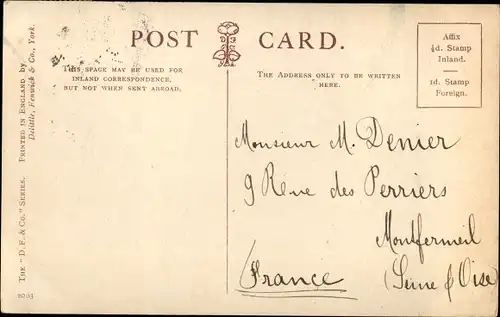 POST CARD.
THIS SPACE MAY BE USED FOR
INLAND CORRESPONDENCE,
BUT NOT WHEN SENT ABROAD.
THE ADDRESS ONLY TO BE WRITTEN
HERE.
Affix
½d. Stamp
Inland.
1d. Stamp
Foreign.
Monsieur M. Denier
9 Rene des Perriers
Montfermeil
France (Seine & Oise)
THE "D. F. & Co." SERIES. PRINTED IN ENGLAND BY
Delittle, Fenwick & Co., York.
2063